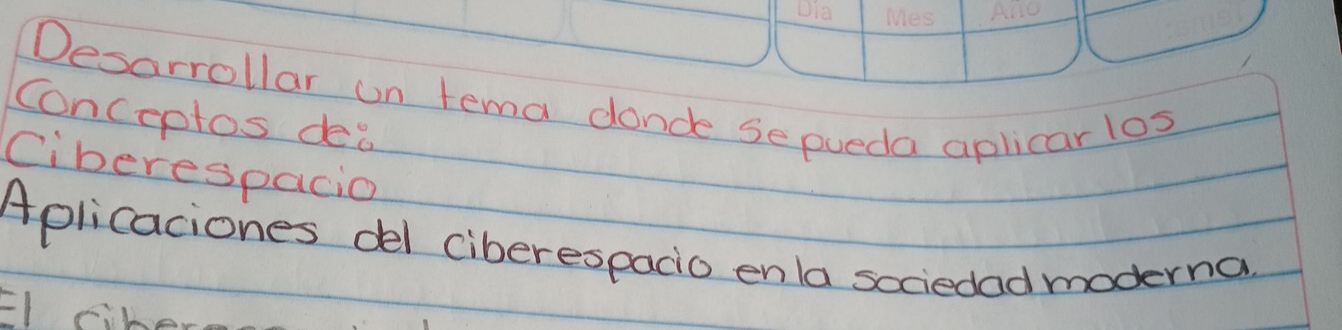 Dia Mes Año
Desarrollar un tema donde se pueda aplicar los
Conceptos de:
Ciberespacio
Aplicaciones del ciberespacio en la sociedad moderna.
El